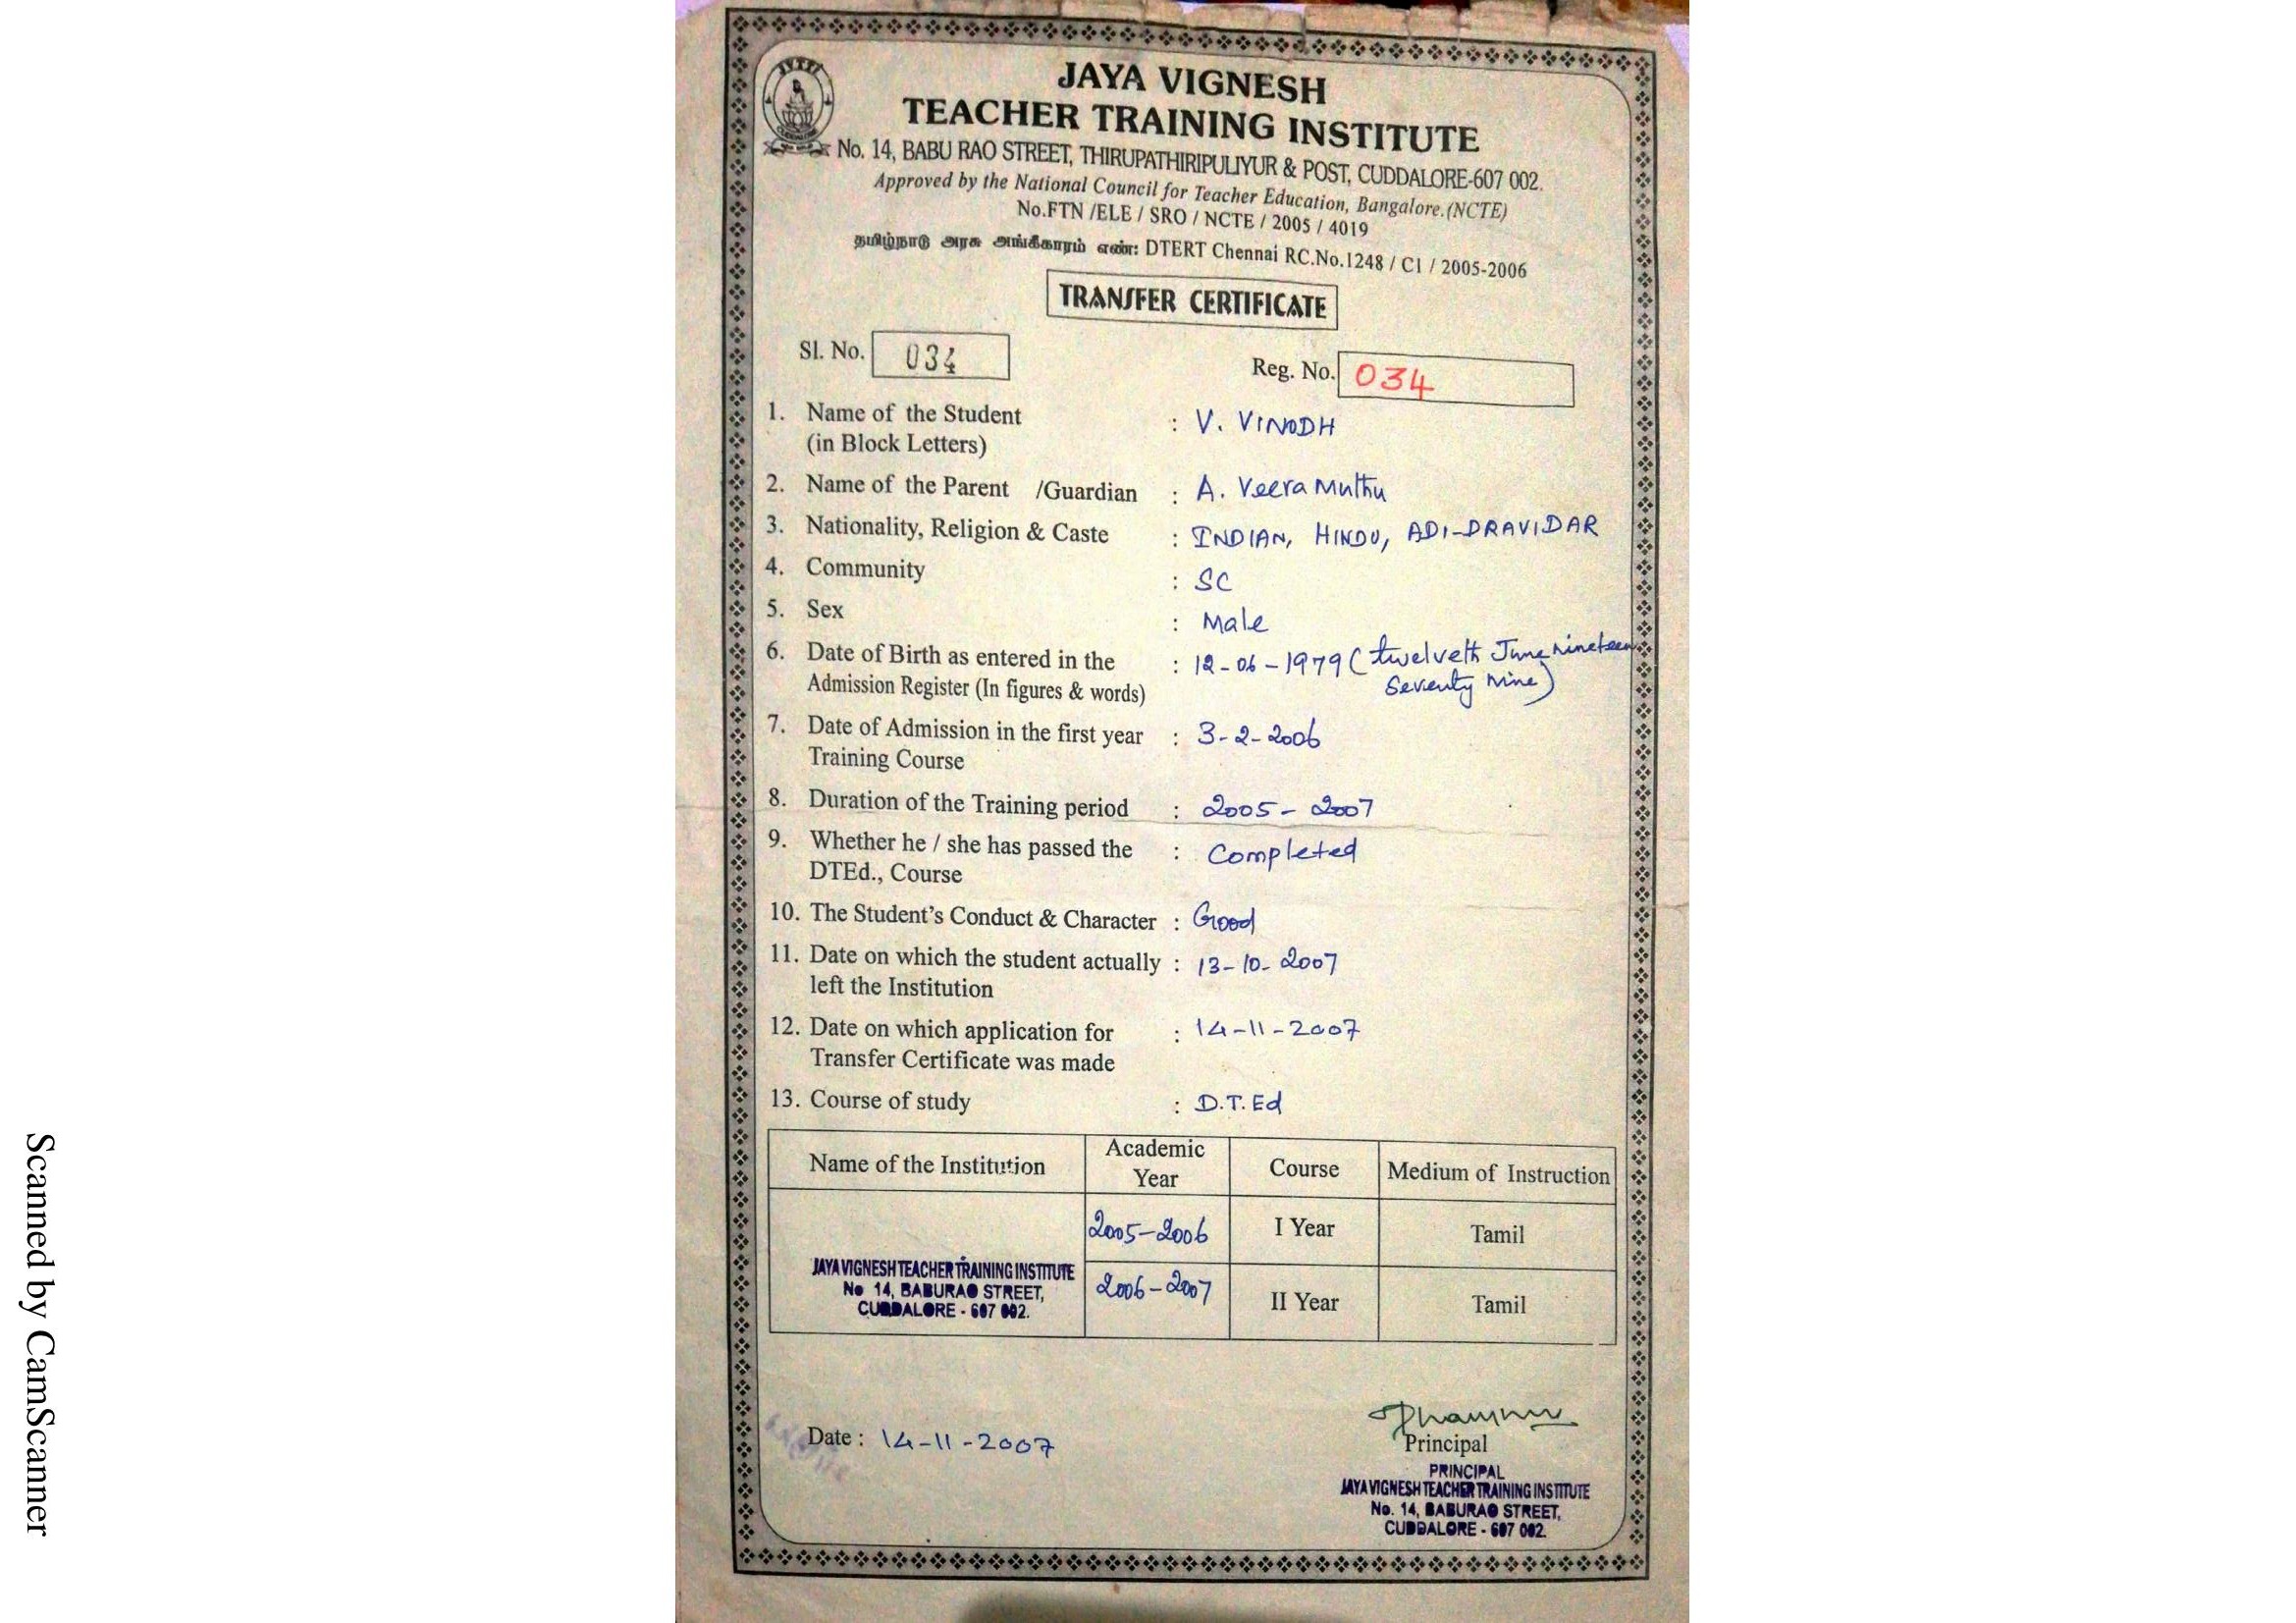 JAYA VIGNESH
TEACHER TRAINING INSTITUTE
No. 14, BABU RAO STREET, THIRUPATHIRIPULIYUR & POST, CUDDALORE-607 002.
Approved by the National Council for Teacher Education, Bangalore.(NCTE)
No.FTN /ELE / SRO / NCTE / 2005 / 4019
தமிழ்நாடு அரசு அங்கீகாரம் எண்: DTERT Chennai RC.No.1248 / C1 / 2005-2006
TRANSFER CERTIFICATE
Sl. No. 034
Reg. No. 034
1. Name of the Student : V. VINODH
(in Block Letters)
2. Name of the Parent /Guardian : A. Veera Muthu
3. Nationality, Religion & Caste : INDIAN, HINDU, ADI-DRAVIDAR
4. Community : SC
5. Sex : Male
6. Date of Birth as entered in the : 12-06-1979 ( twelveth June nineteen
Admission Register (In figures & words) Seventy Nine)
7. Date of Admission in the first year : 3-2-2006
Training Course
8. Duration of the Training period : 2005 - 2007
9. Whether he / she has passed the : Completed
DTEd., Course
10. The Student's Conduct & Character : Good
11. Date on which the student actually : 13-10-2007
left the Institution
12. Date on which application for : 14-11-2007
Transfer Certificate was made
13. Course of study : D.T.Ed
Name of the Institution Academic Year Course Medium of Instruction
2005-2006 I Year Tamil
JAYA VIGNESH TEACHER TRAINING INSTITUTE
No 14, BABURAO STREET,
CUDDALORE - 607 002.
2006-2007 II Year Tamil
Date : 14-11-2007
Principal
PRINCIPAL
JAYA VIGNESH TEACHER TRAINING INSTITUTE
No. 14, BABURAO STREET,
CUDDALORE - 607 002.
Scanned by CamScanner